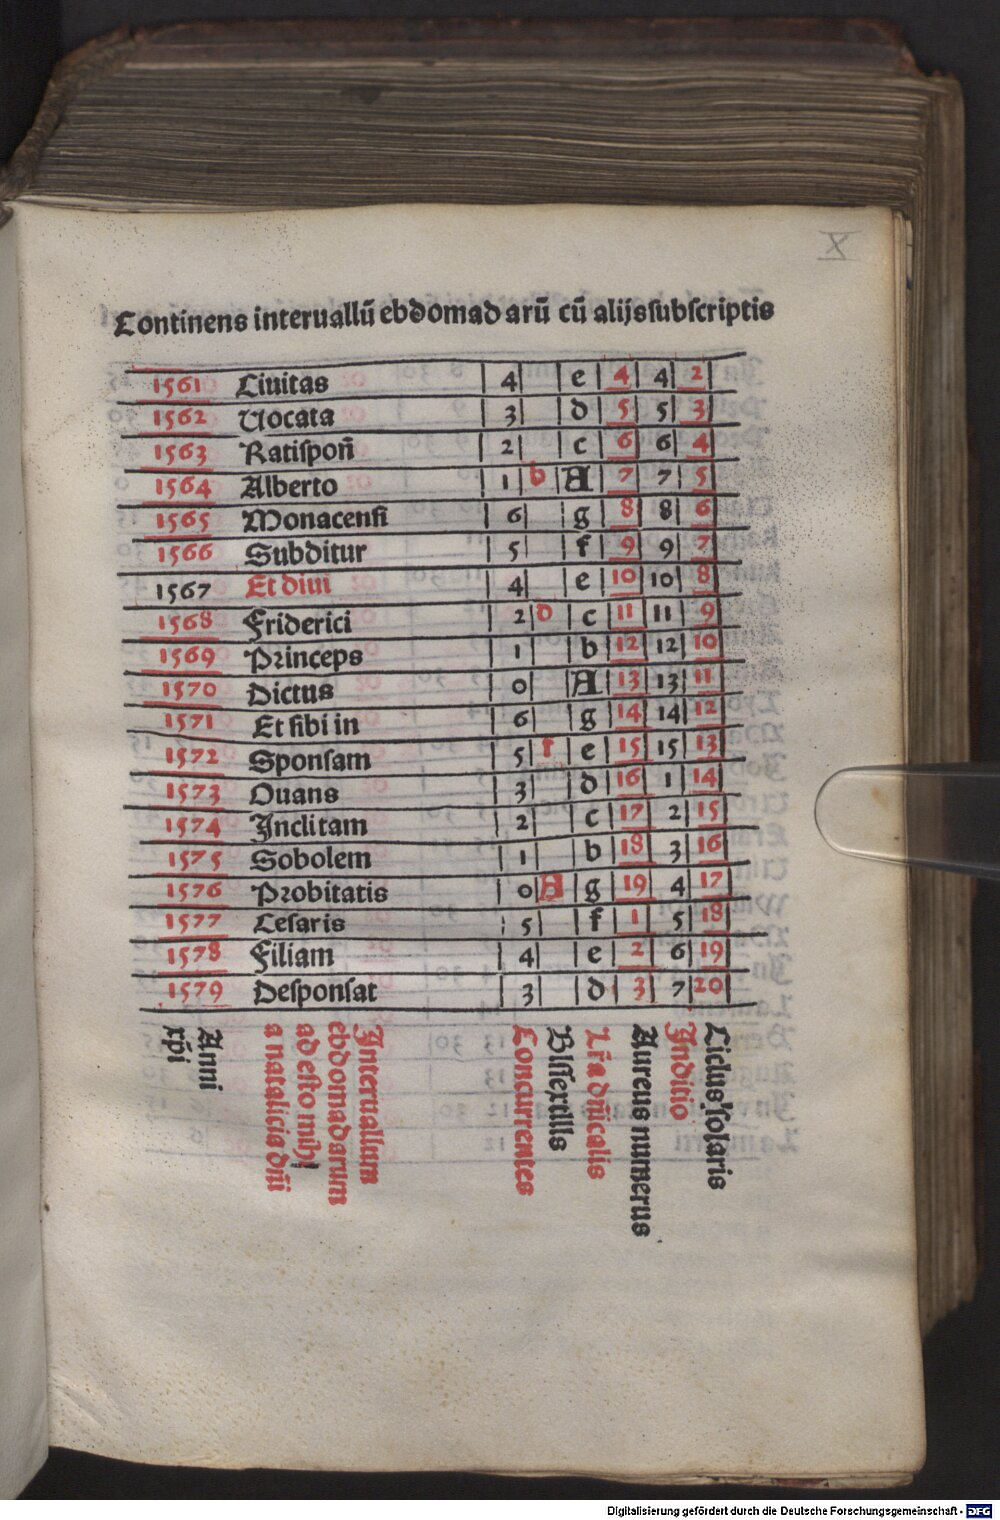 X
Continens interuallū ebdomadarū cū alijs subscriptis
1561 Ciuitas 4 e 4 4 2
1562 Uocata 3 d 5 5 3
1563 Ratispon̄ 2 c 6 6 4
1564 Alberto 1 b A 7 7 5
1565 Monacensi 6 g 8 8 6
1566 Subditur 5 f 9 9 7
1567 Et diui 4 e 10 10 8
1568 Friderici 2 d c 11 11 9
1569 Princeps 1 b 12 12 10
1570 Dictus 0 A 13 13 11
1571 Et sibi in 6 g 14 14 12
1572 Sponsam 5 f e 15 15 13
1573 Ouans 3 d 16 1 14
1574 Inclitam 2 c 17 2 15
1575 Sobolem 1 b 18 3 16
1576 Probitatis 0 A g 19 4 17
1577 Cesaris 5 f 1 5 18
1578 Filiam 4 e 2 6 19
1579 Desponsat 3 d 3 7 20
Anni
xp̄i
Interuallum
ebdomadarum
ad esto mihi
a natalicia dn̄i
Concurrentes
Bissextilis
Lr̄a dn̄icalis
Aureus numerus
Inditio
Ciclus solaris
Digitalisierung gefördert durch die Deutsche Forschungsgemeinschaft - DFG